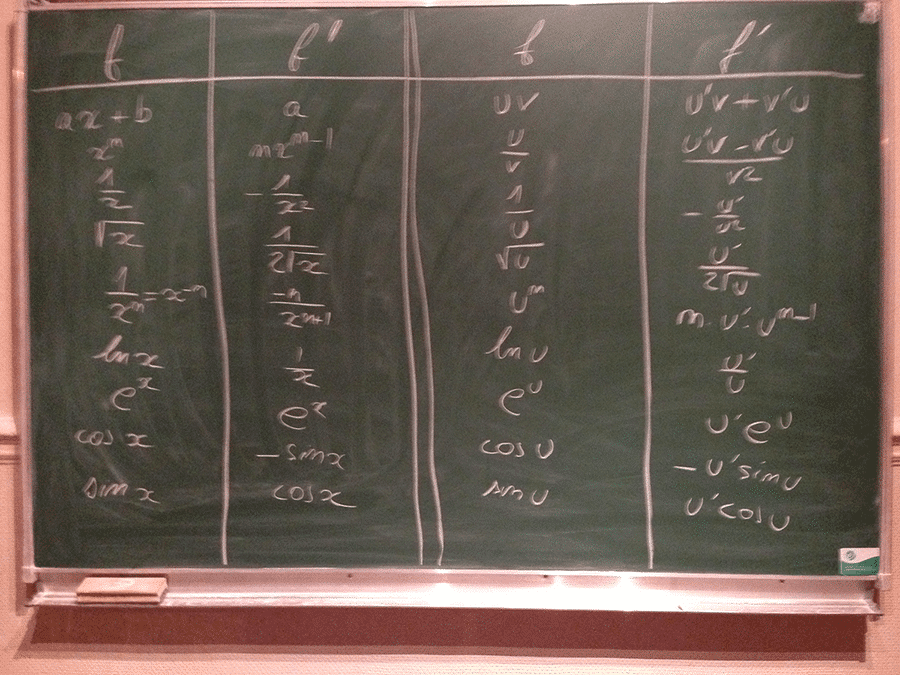 f f' f f'
ax + b a uv u'v + v'u
xⁿ nxⁿ⁻¹ u/v (u'v - v'u)/v²
1/x -1/x² 1/u -u'/u²
√x 1/(2√x) √u u'/(2√u)
1/xⁿ = x⁻ⁿ -n/xⁿ⁺¹ uⁿ n·u'·uⁿ⁻¹
ln x 1/x ln u u'/u
eˣ eˣ eᵘ u'eᵘ
cos x -sin x cos u -u'sin u
sin x cos x sin u u'cos u